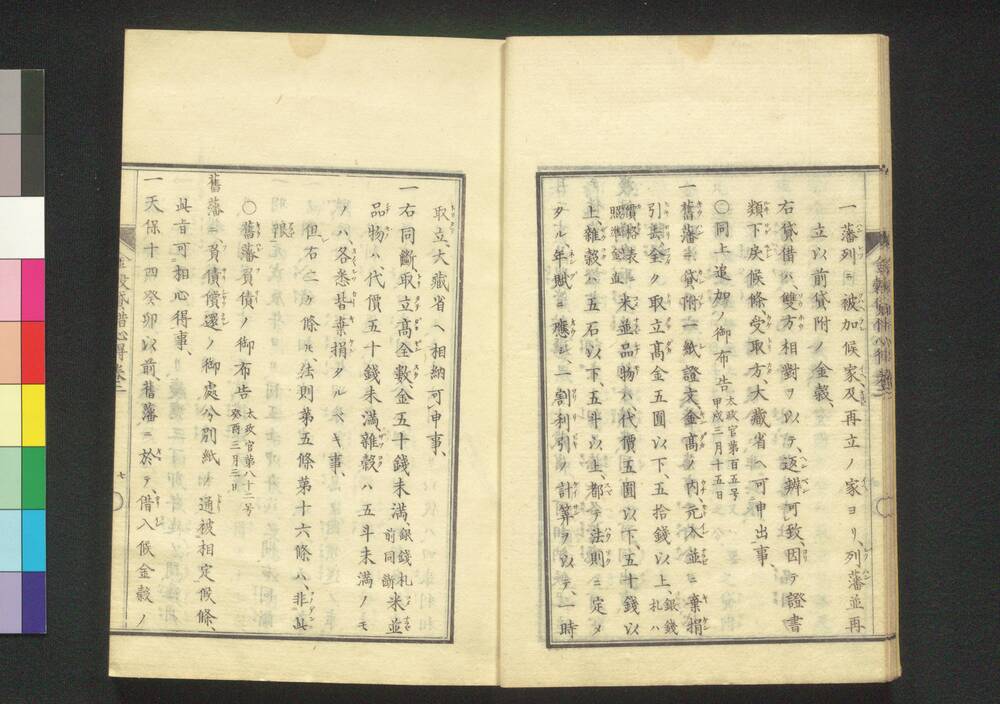 一藩列ニ被加候家及再立ノ家ヨリ、列藩並再
立以前貸附ノ金穀、
右貸借ハ、雙方相對ヲ以テ返辨可致、因テ證書
類下戻候條、受取方、大藏省ヘ可申出事、
〇同上追加ノ御布告 太政官第百五号 甲戌三月十五日
一舊藩ニ貸附一紙證文金高ノ内、元入並ニ棄捐
引去、全ク取立高金五圓以下、五拾錢以上、銀錢札ハ
價格表ニ照準金並ニ米並品物ハ代價五圓以下、五十錢以
上、雜穀ハ五石以下、五斗以上、都テ法則ニ定メ
タル、年賦ニ應シ、二割利引ノ計算ヲ以テ、一時
取立、大藏省ヘ相納可申事、
一右同斷、取立高全數金五十錢未滿、銀錢札前同斷米並
品物ハ代價五十錢未滿、雜穀ハ五斗未滿ノモ
ノハ、各悉皆棄捐タルヘキ事、
但右二ケ條ハ、法則第五條第十六條ハ、非此
限
〇舊藩負債ノ御布告 太政官第八十二号 癸酉三月三日
舊藩ニ負債償還ノ御處分別紙ノ通被相定候條、
此旨可相心得事、
一天保十四癸卯以前、舊藩ニ於テ借入候金穀ノ
七